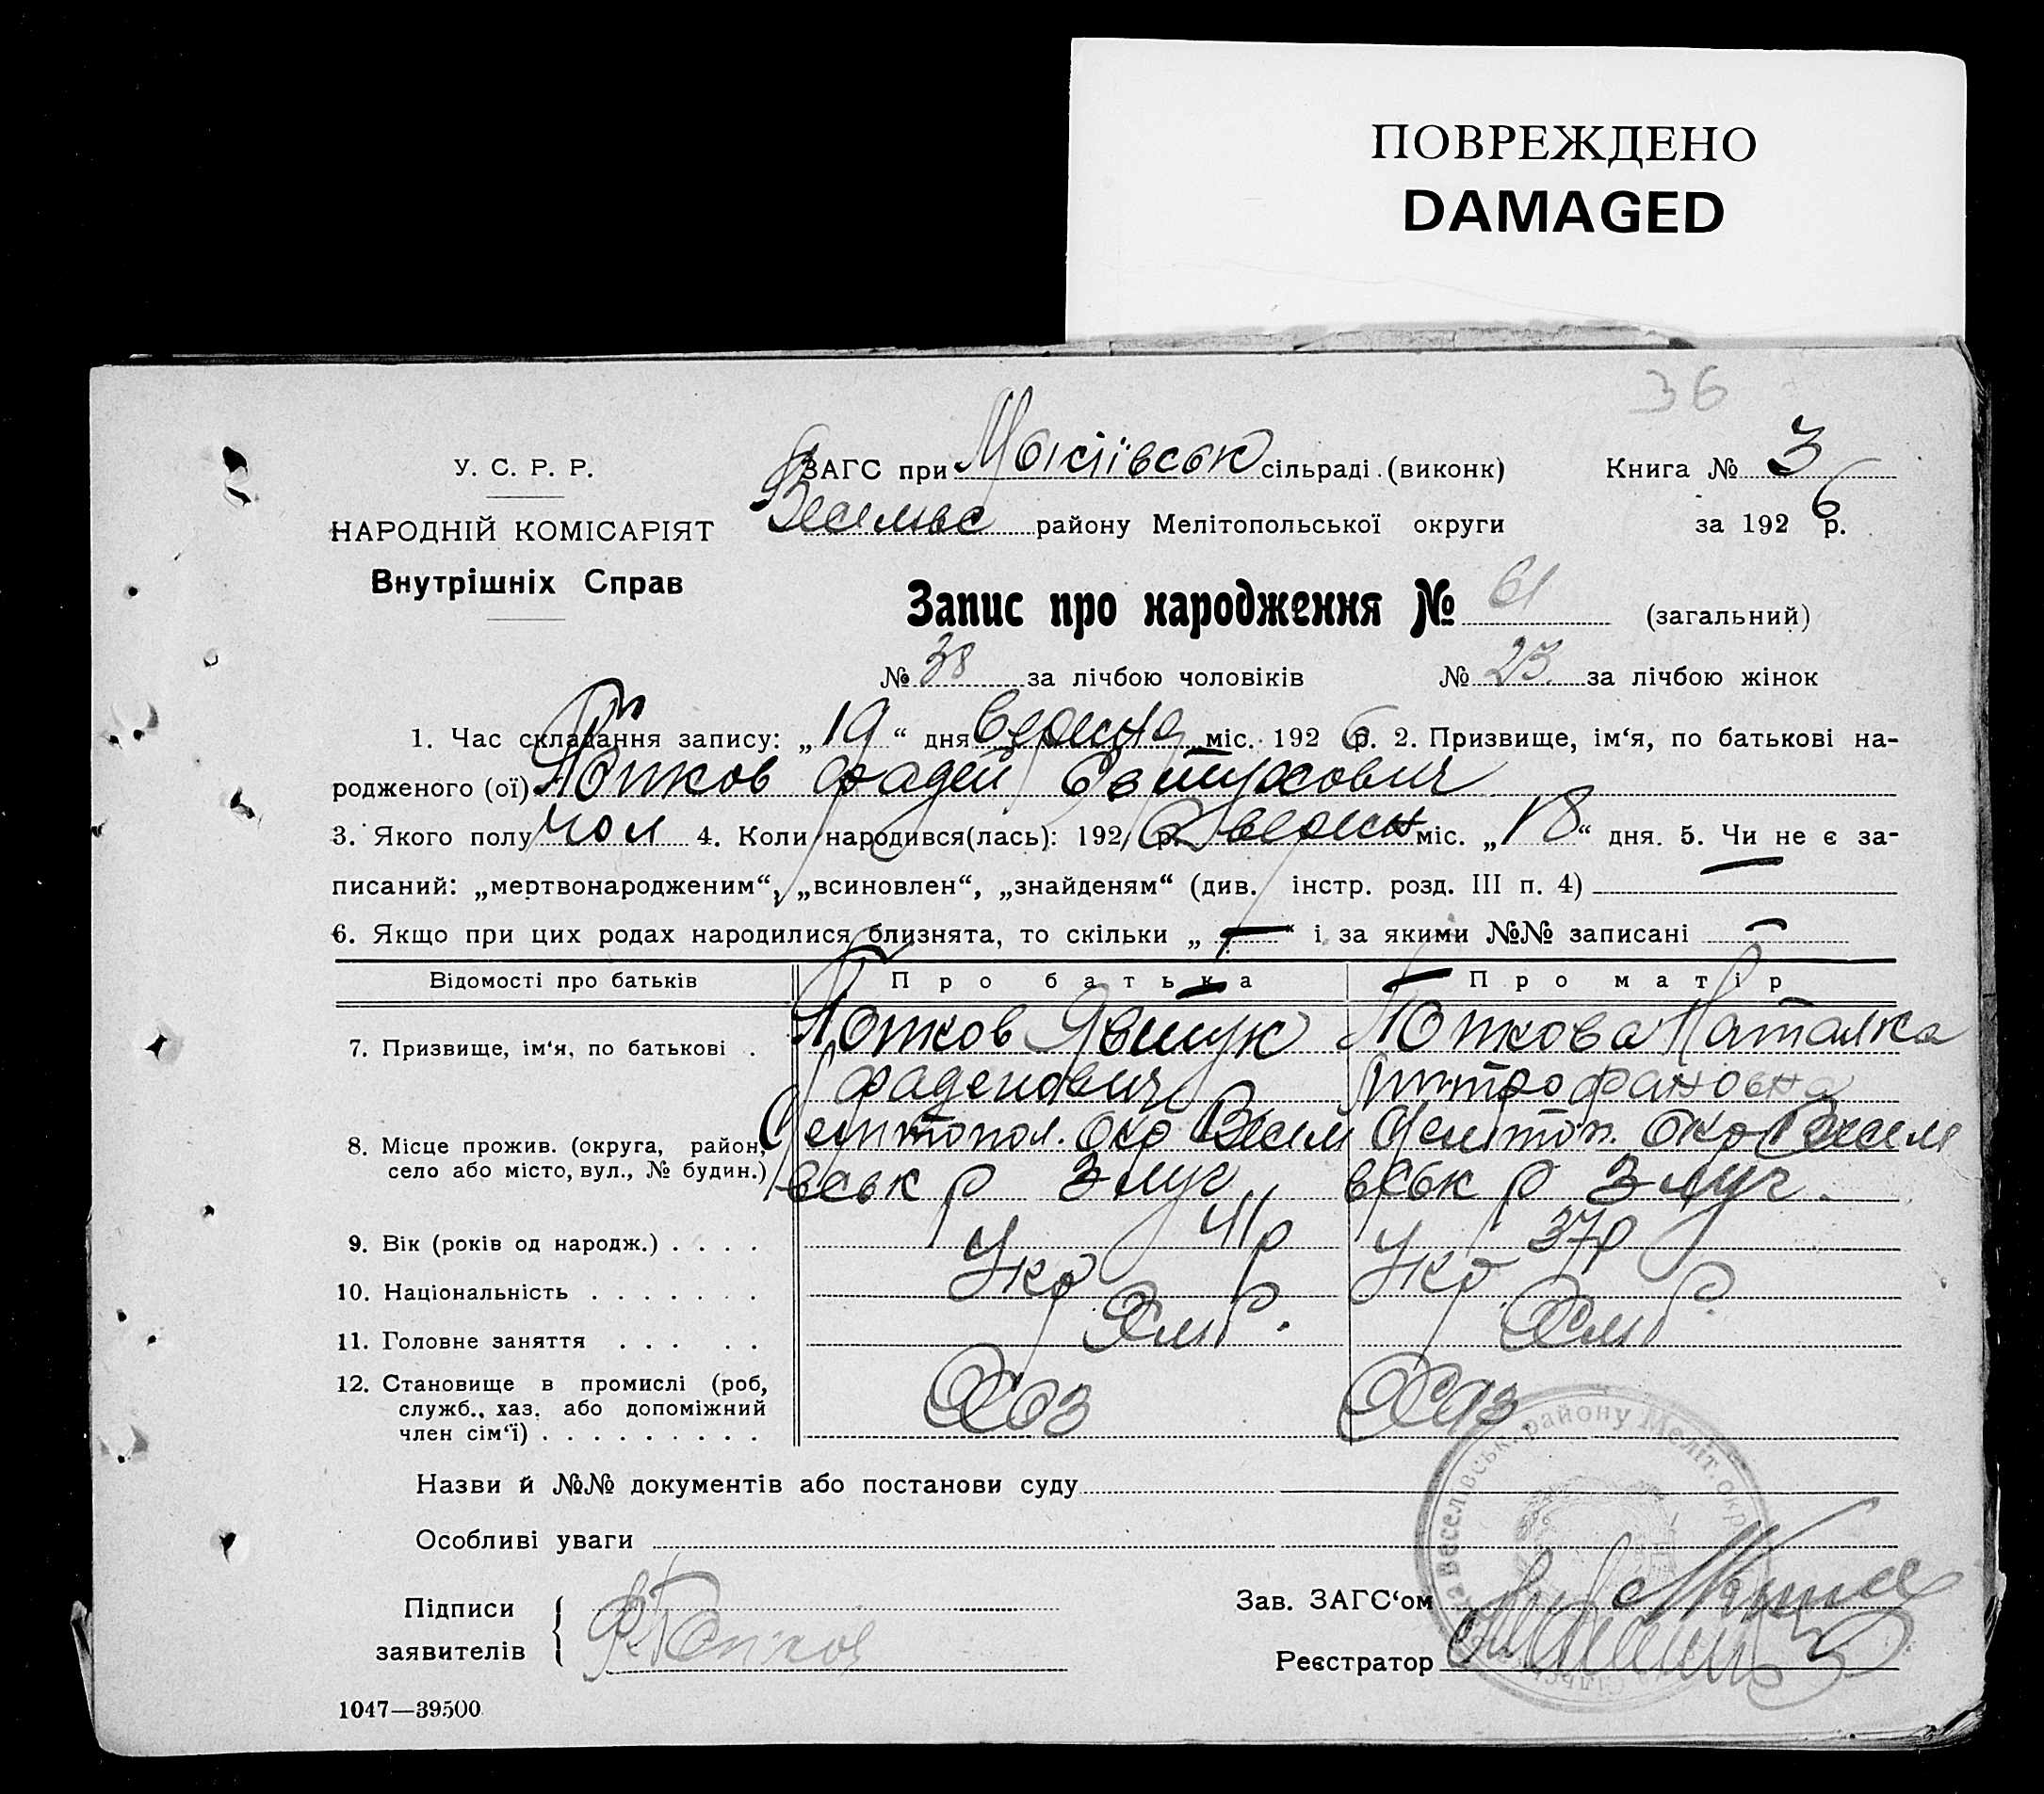 ПОВРЕЖДЕНО
DAMAGED
36
У. С. Р. Р.
НАРОДНІЙ КОМІСАРІЯТ
Внутрішніх Справ
ЗАГС при сільраді (виконк)
района Мелітопольської округи
Книга № 3
за 1926 р.
Запис про народження № 61 (загальний)
№ 38 за лічбою чоловіків № 23 за лічбою жінок
1. Час складання запису: „19“ дня вересня міс. 1926 р. 2. Призвище, ім‘я, по батькові на-
родженого (ої) Фадей Овтухович
3. Якого полу чол 4. Коли народився(лась): 1926 р. вересн міс. „18“ дня. 5. Чи не є за-
писаний: „мертвонародженим“, „всиновлен“, „знайденям“ (див. інстр. розд. III п. 4) —
6. Якщо при цих родах народилися близнята, то скільки „—“ і за якими №№ записані —
Відомості про батьків Про батька Про матір
7. Призвище, ім‘я, по батькові . Явтух Наталка
Фадеиович Митрофановна
8. Місце прожив. (округа, район, Мелитопол. окр Весел Мелитоп. окр Весел
село або місто, вул., № будин.) вськ р З луг вськ р З луг.
9. Вік (років од народж.) . . . . 41р 37р
10. Національність . . . . . . . Укр Укр
11. Головне заняття . . . . . Хліб. Хліб
12. Становище в промислі (роб, Хоз Хаз
служб., хаз. або допоміжний
член сім‘ї) . . . . . . . . .
Назви й №№ документів або постанови суду
Особливі уваги
Підписи
заявителів
Зав. ЗАГС‘ом
Реєстратор
Веселівськ. району Меліт. окр
1047—39500